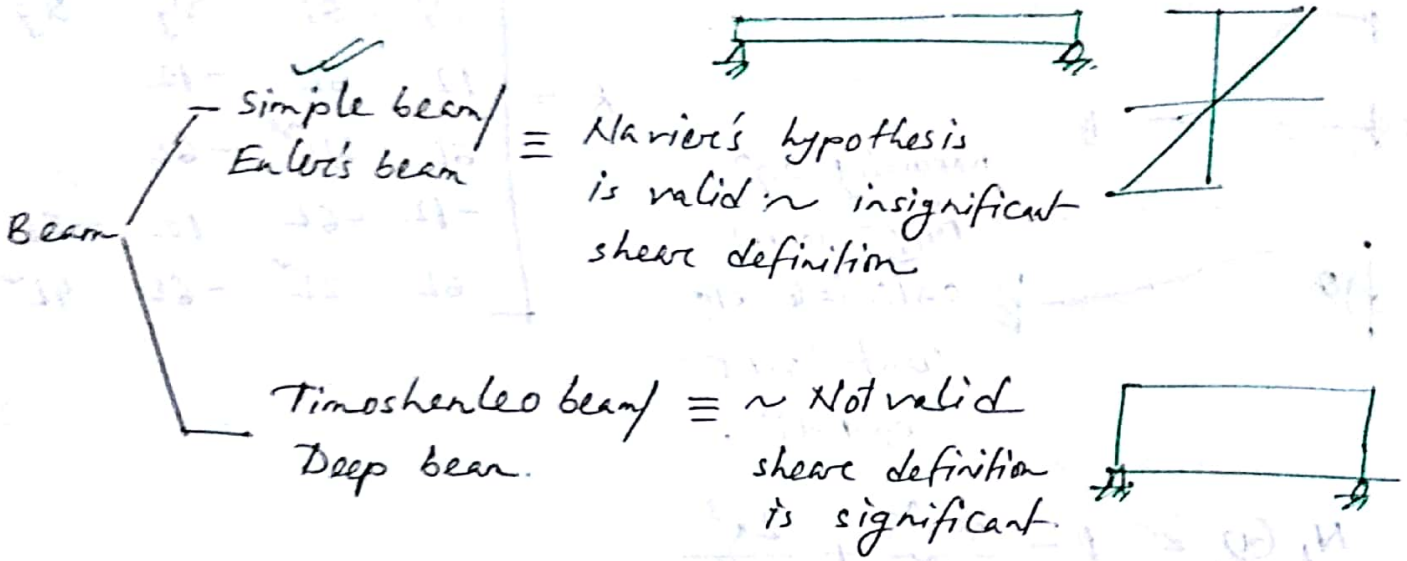 Simple beam/
Euler's beam
≡ Navier's hypothesis
is valid ~ insignificant
shear definition
Beam
Timoshenko beam/
Deep beam.
≡ ~ Not valid
shear definition
is significant.